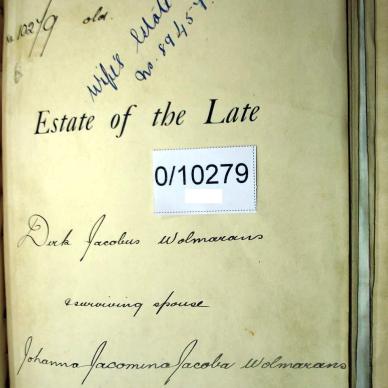 No 10279 old
Wife's Estate
No. 89457
Estate of the Late
0/10279
Dirk Jacobus Wolmarans
& surviving spouse
Johanna Jacomina Jacoba Wolmarans